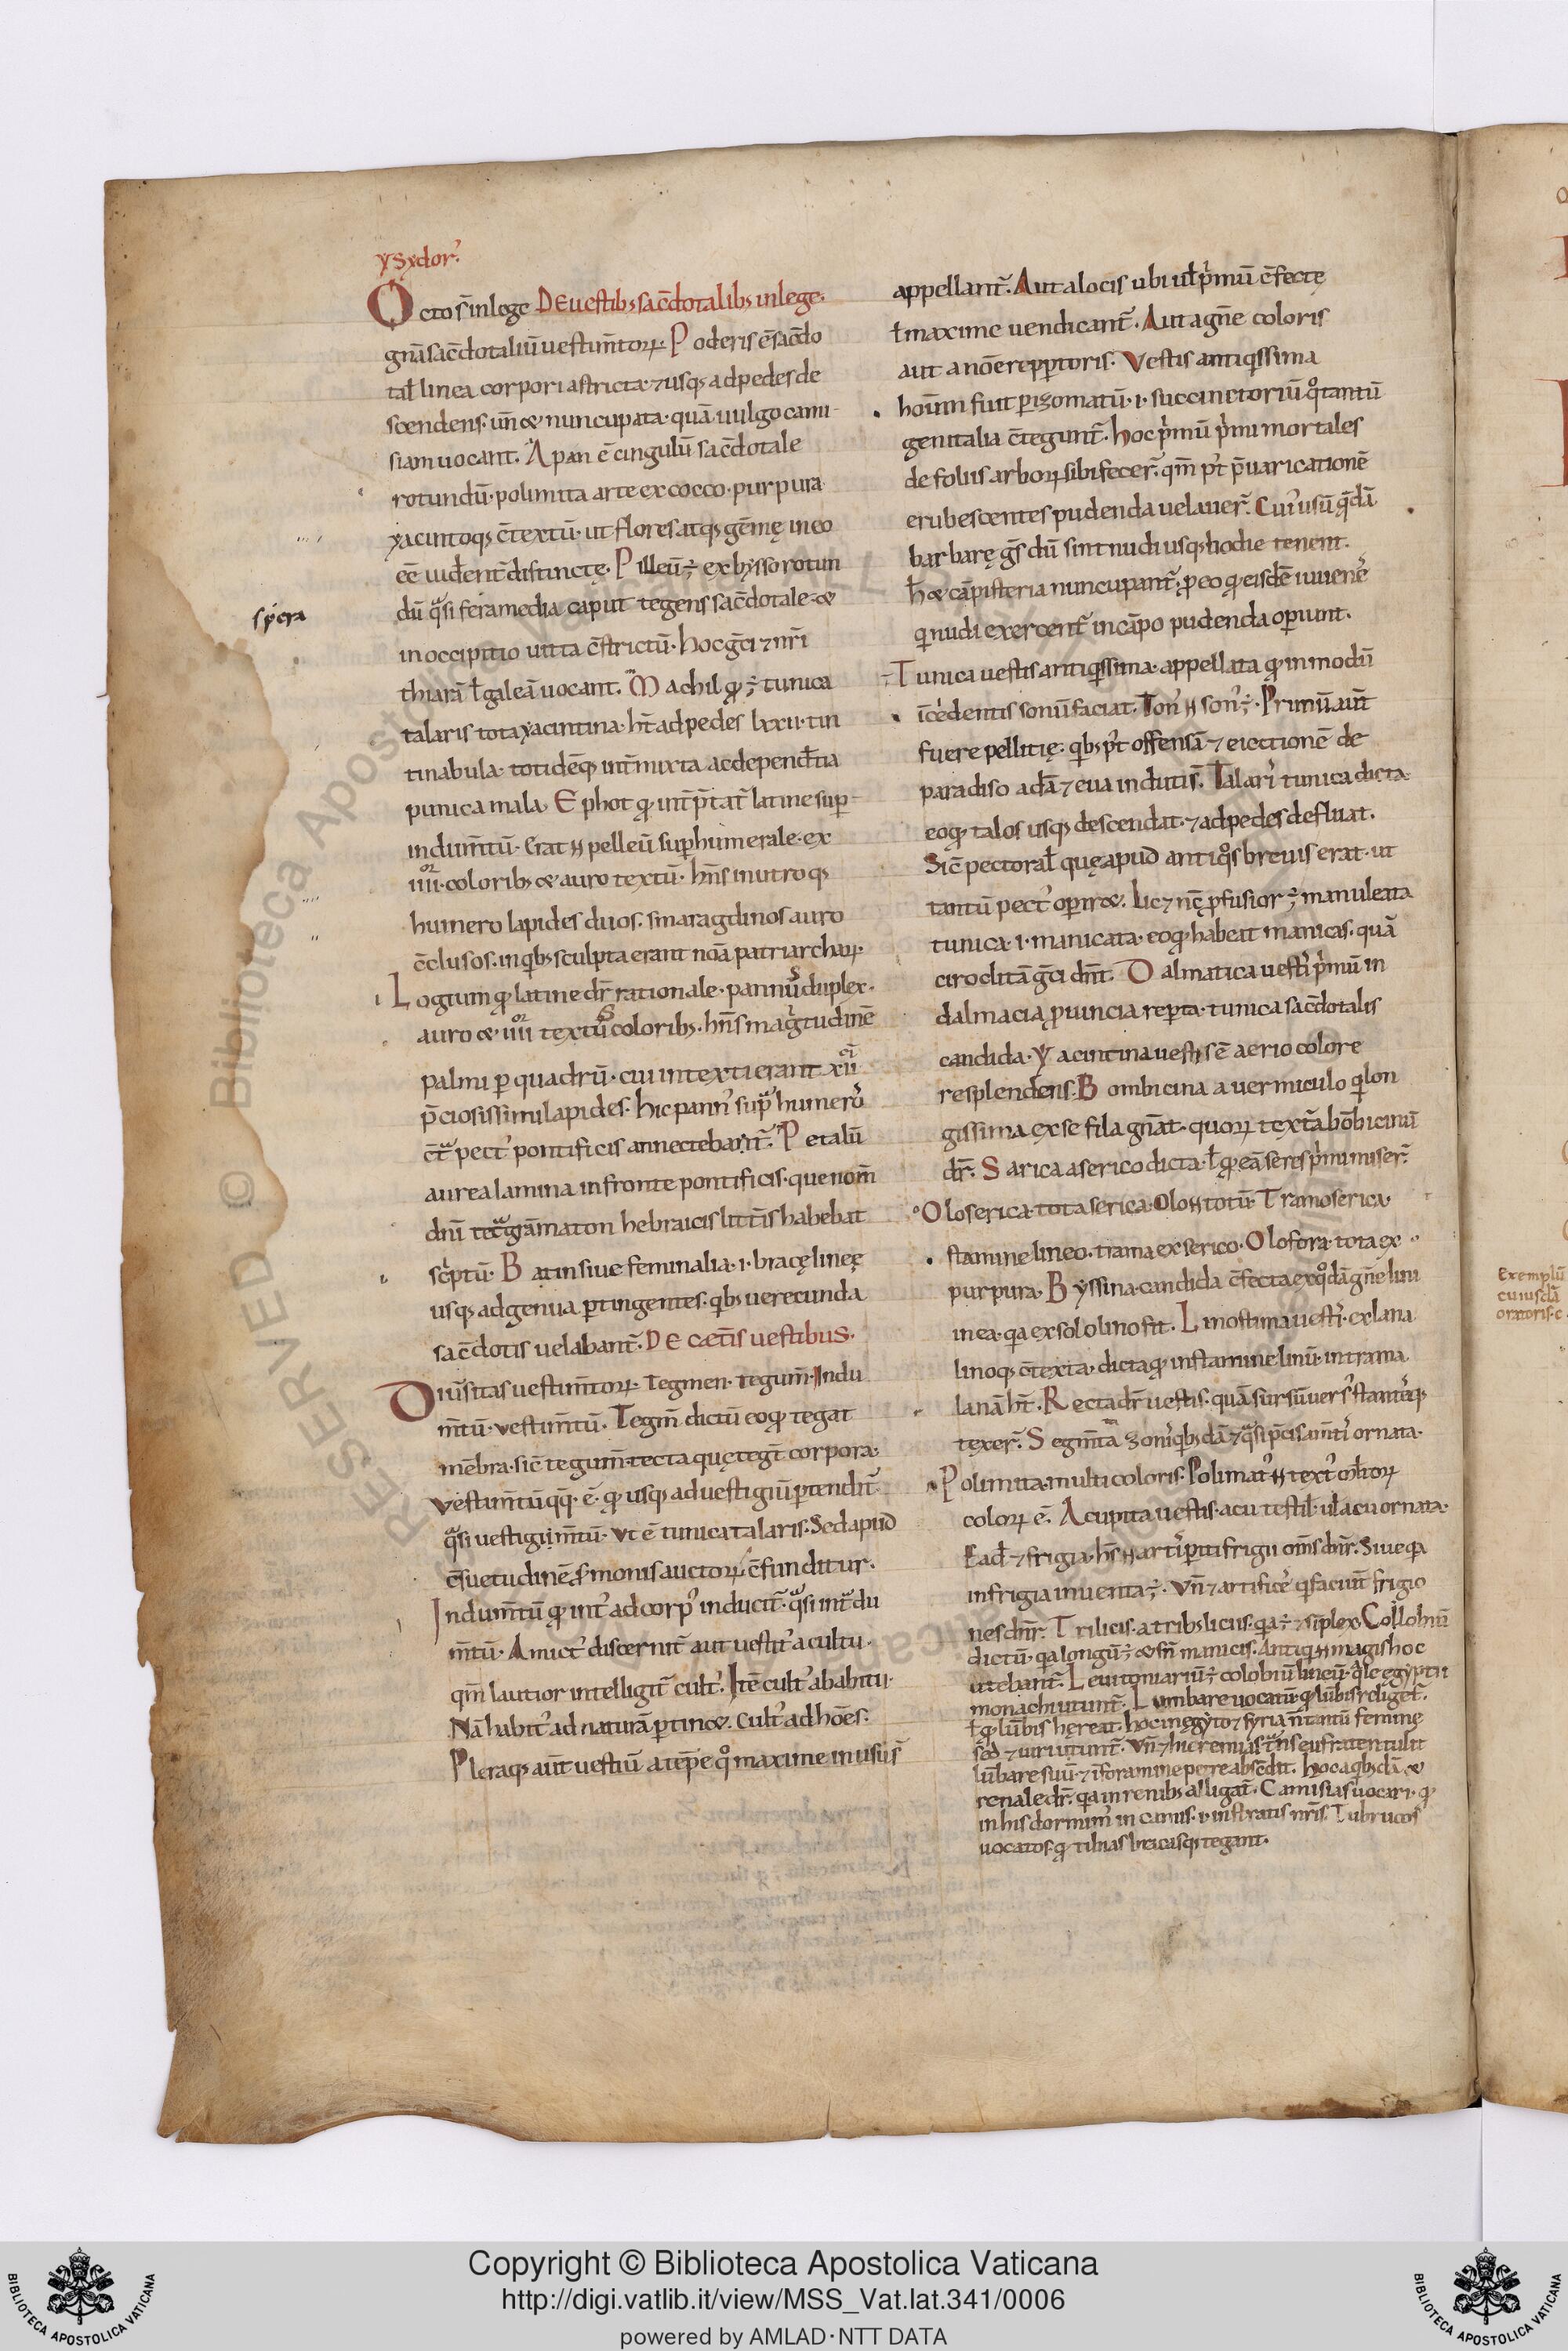 ysydor᾿.
Octo s̄ in lege DE uestib; sac̄dotalib; in lege.
gn̄a sac̄dotaliū uestim̄toꝝ. Poderis ē sac̄do
tal̄ linea corpori astricta. ⁊ usq; ad pedes de
scendens. un̄ & nuncupata. quā uulgo cami
siam uocant. Apan ē cingulū sac̄dotale
rotundū. polimita arte ex cocco. purpura
yacintoq; c̄textū. ut flores atq; gēmę in eo
eē uident̄ distinctę. Pilleū ÷ ex bysso rotun
dū q̄si feramedia caput tegens sac̄dotale. &
in occipitio uitta c̄strictū. hoc gc̄i ⁊ nr̄i
thiarā ł galeā uocant. Machil ꝙ ÷ tunica
talaris tota yacintina. ht̄ ad pedes lxxii. tin
tinabula. totidēq; int̄mixta ac dependt̄ia
punica mala. Ephot ꝙ int̄p̄tat̄ latine sup̄
indum̄tū. Erat .n. pelleū suphumerale. ex
iiii. colorib; & auro textū. hn̄s in utroq;
humero lapides duos. smaragdinos auro
c̄clusos. in qb; sculpta erant noā patriarchaꝝ.
Logium ꝙ latine dr̄ rationale. pannus duplex.
auro & iiii textus colorib;. hn̄s magtudinē
palmi ꝑ quadrū. cui intexti erant xii
p̄ciosissimi lapides. hic pann᾿ sup humerū
c̄t pect᾿ pontificis annectebat̄. Petalū
aurea lamina in fronte pontificis. que nom̄
dnī tetragāmaton hebraicis litt̄is habebat
sc̄ptū. Batin siue feminalia. i. bracę lineę
usq; ad genua ꝑtingentes. qb; uerecunda
sac̄dotis uelabant̄. DE cæt̄is uestibus.
Diūsitas uestim̄toꝝ. Tegmen. tegum̄. Indu
m̄tū. vestim̄tū. Tegm̄ dictū eo ꝙ tegat
mēbra. sic̄ tegum̄. tecta quę tegt̄ corpora.
vestim̄tū qq̄. ē. ꝙ usq; ad uestigiū ꝑtendit̄
q̄si uestigiim̄tū. vt ē tunica talaris. Sed apud
c̄suetudinē s̄monis auctoꝝ c̄funditur.
Indum̄tū ꝙ int᾿ ad corp᾿ inducit̄. q̄si int̄du
m̄tū. Amict᾿ discernit̄ aut uestit᾿ a cultu.
qm̄ lautior intelligit̄ cult᾿. Itē cult᾿ ab abitu.
Nā habit᾿ ad naturā ꝑtin&. cult᾿ ad hoēs.
Pleraq; aūt uestiū a tēpe qͦ maxime in usu s̄
appellant̄. Aut a locis ubi uł pͥmū c̄fectę
ł maxime uendicant̄. Aut a gn̄e coloris
aut a noē repꝑtoris. Vestis antiqͥssima
hoīum fuit ꝑizomatū. i. succinctoriū qͦ tantū
genitalia c̄tegunt̄. hoc pͥmū pͥmi mortales
de foliis arboꝝ sibi fecer̄. qm̄ pt᾿ p̄uaricationē
erubescentes pudenda uelauer̄. Cui᾿ usū q̄dā
barbarę gs̄ dū sint nudi usq; hodie tenent.
h& cāpisteria nuncupant̄. ꝓ eo ꝙ eisdē iuuenes
q nudi exercent̄ in cāpo pudenda oꝑiunt.
Tunica uestis antiqͥssima. appellata ꝙ in modū
īcedentis sonū faciat. Ton᾿ .n. son᾿ ÷. Primū aūt
fuere pellitię. qb; pt᾿ offensā ⁊ eiectionē de
paradiso adā ⁊ eua induti s̄. Talari᾿ tunica dicta
eo ꝙ talos usq; descendat. ⁊ ad pedes defluat.
Sic̄ pectoral̄ quę apud antiqͦs breuis erat. ut
tantū pect᾿ oꝑir&. lic& nc̄ ꝓfusior ÷. manuleata
tunica. i. manicata. eo ꝙ habeat manicas. quā
ciroclitā gc̄i dnt̄. Dalmatica uest᾿ pͥmū in
dalmacia ꝓuincia reꝑta. tunica sac̄dotalis
candida. Yacintina uestis ē aerio colore
resplendens. Bombicina a uermiculo q lon
gissima ex se fila gn̄at. quoꝝ textura bōbicinū
dr̄. Sarica a serico dicta. ł ꝙ eā seres pͥmi miser̄.
Oloserica. tota serica. olo .n. totū. Tramoserica.
stamine lineo. trama ex serico. Olofora. tota ex
purpura. Byssina. candida c̄fecta ex qͦdā gn̄e lini
in ea. qa ex solo lino fit. Linostima uest᾿. ex lana
linoq; c̄texta. dicta ꝙ in stamine linū. in trama
lanā ht̄. Recta dr̄ uestis. quā sursū uers᾿ stantes
texer̄. Segm̄ta zonis qb;dā ⁊ q̄si p̄cisam̄tis ornata.
Polimita. multi coloris. Polimat᾿ .n. text᾿ mltoꝝ
coloꝝ ē. Acupita uestis. acu testil̄. uł acu ornata.
Ead̄ ⁊ frigia. hs̄ .n. artis ꝑiti frigii oms̄ dnr̄. Siue qa
in frigia inuenta ÷. Vn̄ ⁊ artifices q faciūt frigio
nes dnr̄. Trilicis. a trib; liciis. qa ÷ ⁊ siplex. Collobiū
dictū. qa longū ÷ & sn̄ manicis. Antiqͥ .n. magis hoc
utebant̄. Leuitoniariū ÷ colobiū lineū. q̄le egyptii
monachi utunt̄. Lumbare uocatū. ꝙ lūbis religet̄.
ł ꝙ lūbis hęreat. hoc in egypto ⁊ syria n̄ tantū feminę
sed ⁊ uiri utunt̄. Vn̄ ⁊ hieremias tn̄s eufraten tulit
lūbare suū. ⁊ ī foramine petre abscōdit. hoc a qb;dā &
renale dr̄. qa in renib; alligat̄. Camisias uocari. ꝙ
in his dormim᾿ in camis. i. in stratis nr̄is. Tubrucos
uocatos. ꝙ tibias bracasq; tegant.
spera
Exemplū
cuiusdā
oratoris. c
Copyright © Biblioteca Apostolica Vaticana
http://digi.vatlib.it/view/MSS_Vat.lat.341/0006
powered by AMLAD·NTT DATA
BIBLIOTECA APOSTOLICA VATICANA
BIBLIOTECA APOSTOLICA VATICANA